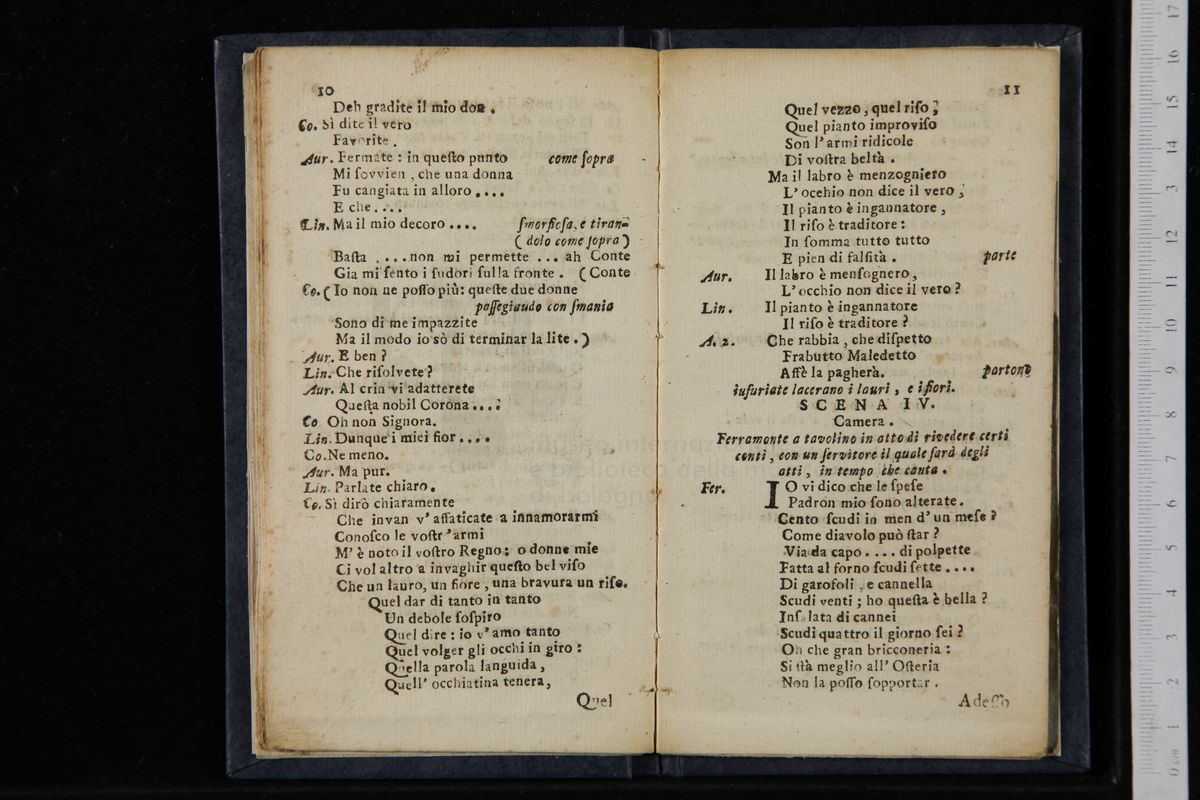 10
Deh gradite il mio don .
Co. Sì dite il vero
Favorite .
Aur. Fermate : in queſto punto come ſopra
Mi ſovvien , che una donna
Fu cangiata in alloro ....
E che ....
Lin. Ma il mio decoro .... ſmorfioſa, e tiran-
( dolo come ſopra )
Baſta ....non mi permette ... ah Conte
Gia mi ſento i ſudori ſulla fronte . (Conte
Co. ( Io non ne poſſo più: queſte due donne
paſſegiaudo con ſmania
Sono di me impazzite
Ma il modo io sò di terminar la lite . )
Aur. E ben ?
Lin. Che riſolvete ?
Aur. Al crin vi adatterete
Queſta nobil Corona ....
Co Oh non Signora.
Lin. Dunque i miei fior ....
Co. Ne meno.
Aur. Ma pur.
Lin. Parlate chiaro.
Co. Sì dirò chiaramente
Che invan v' affaticate a innamorarmi
Conoſco le voſtr 'armi
M' è noto il voſtro Regno ; o donne mie
Ci vol altro a invaghir queſto bel viſo
Che un lauro, un fiore , una bravura un riſo.
Quel dar di tanto in tanto
Un debole ſoſpiro
Quel dire : io v' amo tanto
Quel volger gli occhi in giro :
Quella parola languida ,
Quell' occhiatina tenera,
Quel
11
Quel vezzo , quel riſo ;
Quel pianto improviſo
Son l' armi ridicole
Di voſtra beltà .
Ma il labro è menzogniero
L' ocehio non dice il vero ,
Il pianto è ingannatore ,
Il riſo è traditore :
In ſomma tutto tutto
E pien di falſità . parte
Aur. Il labro è menſognero,
L' occhio non dice il vero ?
Lin. Il pianto è ingannatore
Il riſo è traditore ?
A. 2. Che rabbia , che diſpetto
Frabutto Maledetto
Affè la pagherà. partono
iufuriate lacerano i lauri , e i fiori.
SCENA IV.
Camera .
Ferramonte a tavolino in atto di rivedere certi
conti , con un ſervitore il quale farà degli
atti , in tempo che canta .
Fer. IO vi dico che le ſpeſe
Padron mio ſono alterate .
Cento ſcudi in men d' un meſe ?
Come diavolo può ſtar ?
Via da capo .... di polpette
Fatta al forno ſcudi ſette ....
Di garofoli , e cannella
Scudi venti ; ho queſta è bella ?
Inſalata di cannei
Scudi quattro il giorno ſei ?
Oh che gran bricconeria :
Si ſtà meglio all' Oſteria
Non la poſſo ſopportar .
Adeſſo
0 cm 1 2 3 4 5 6 7 8 9 10 11 12 13 14 15 16 17